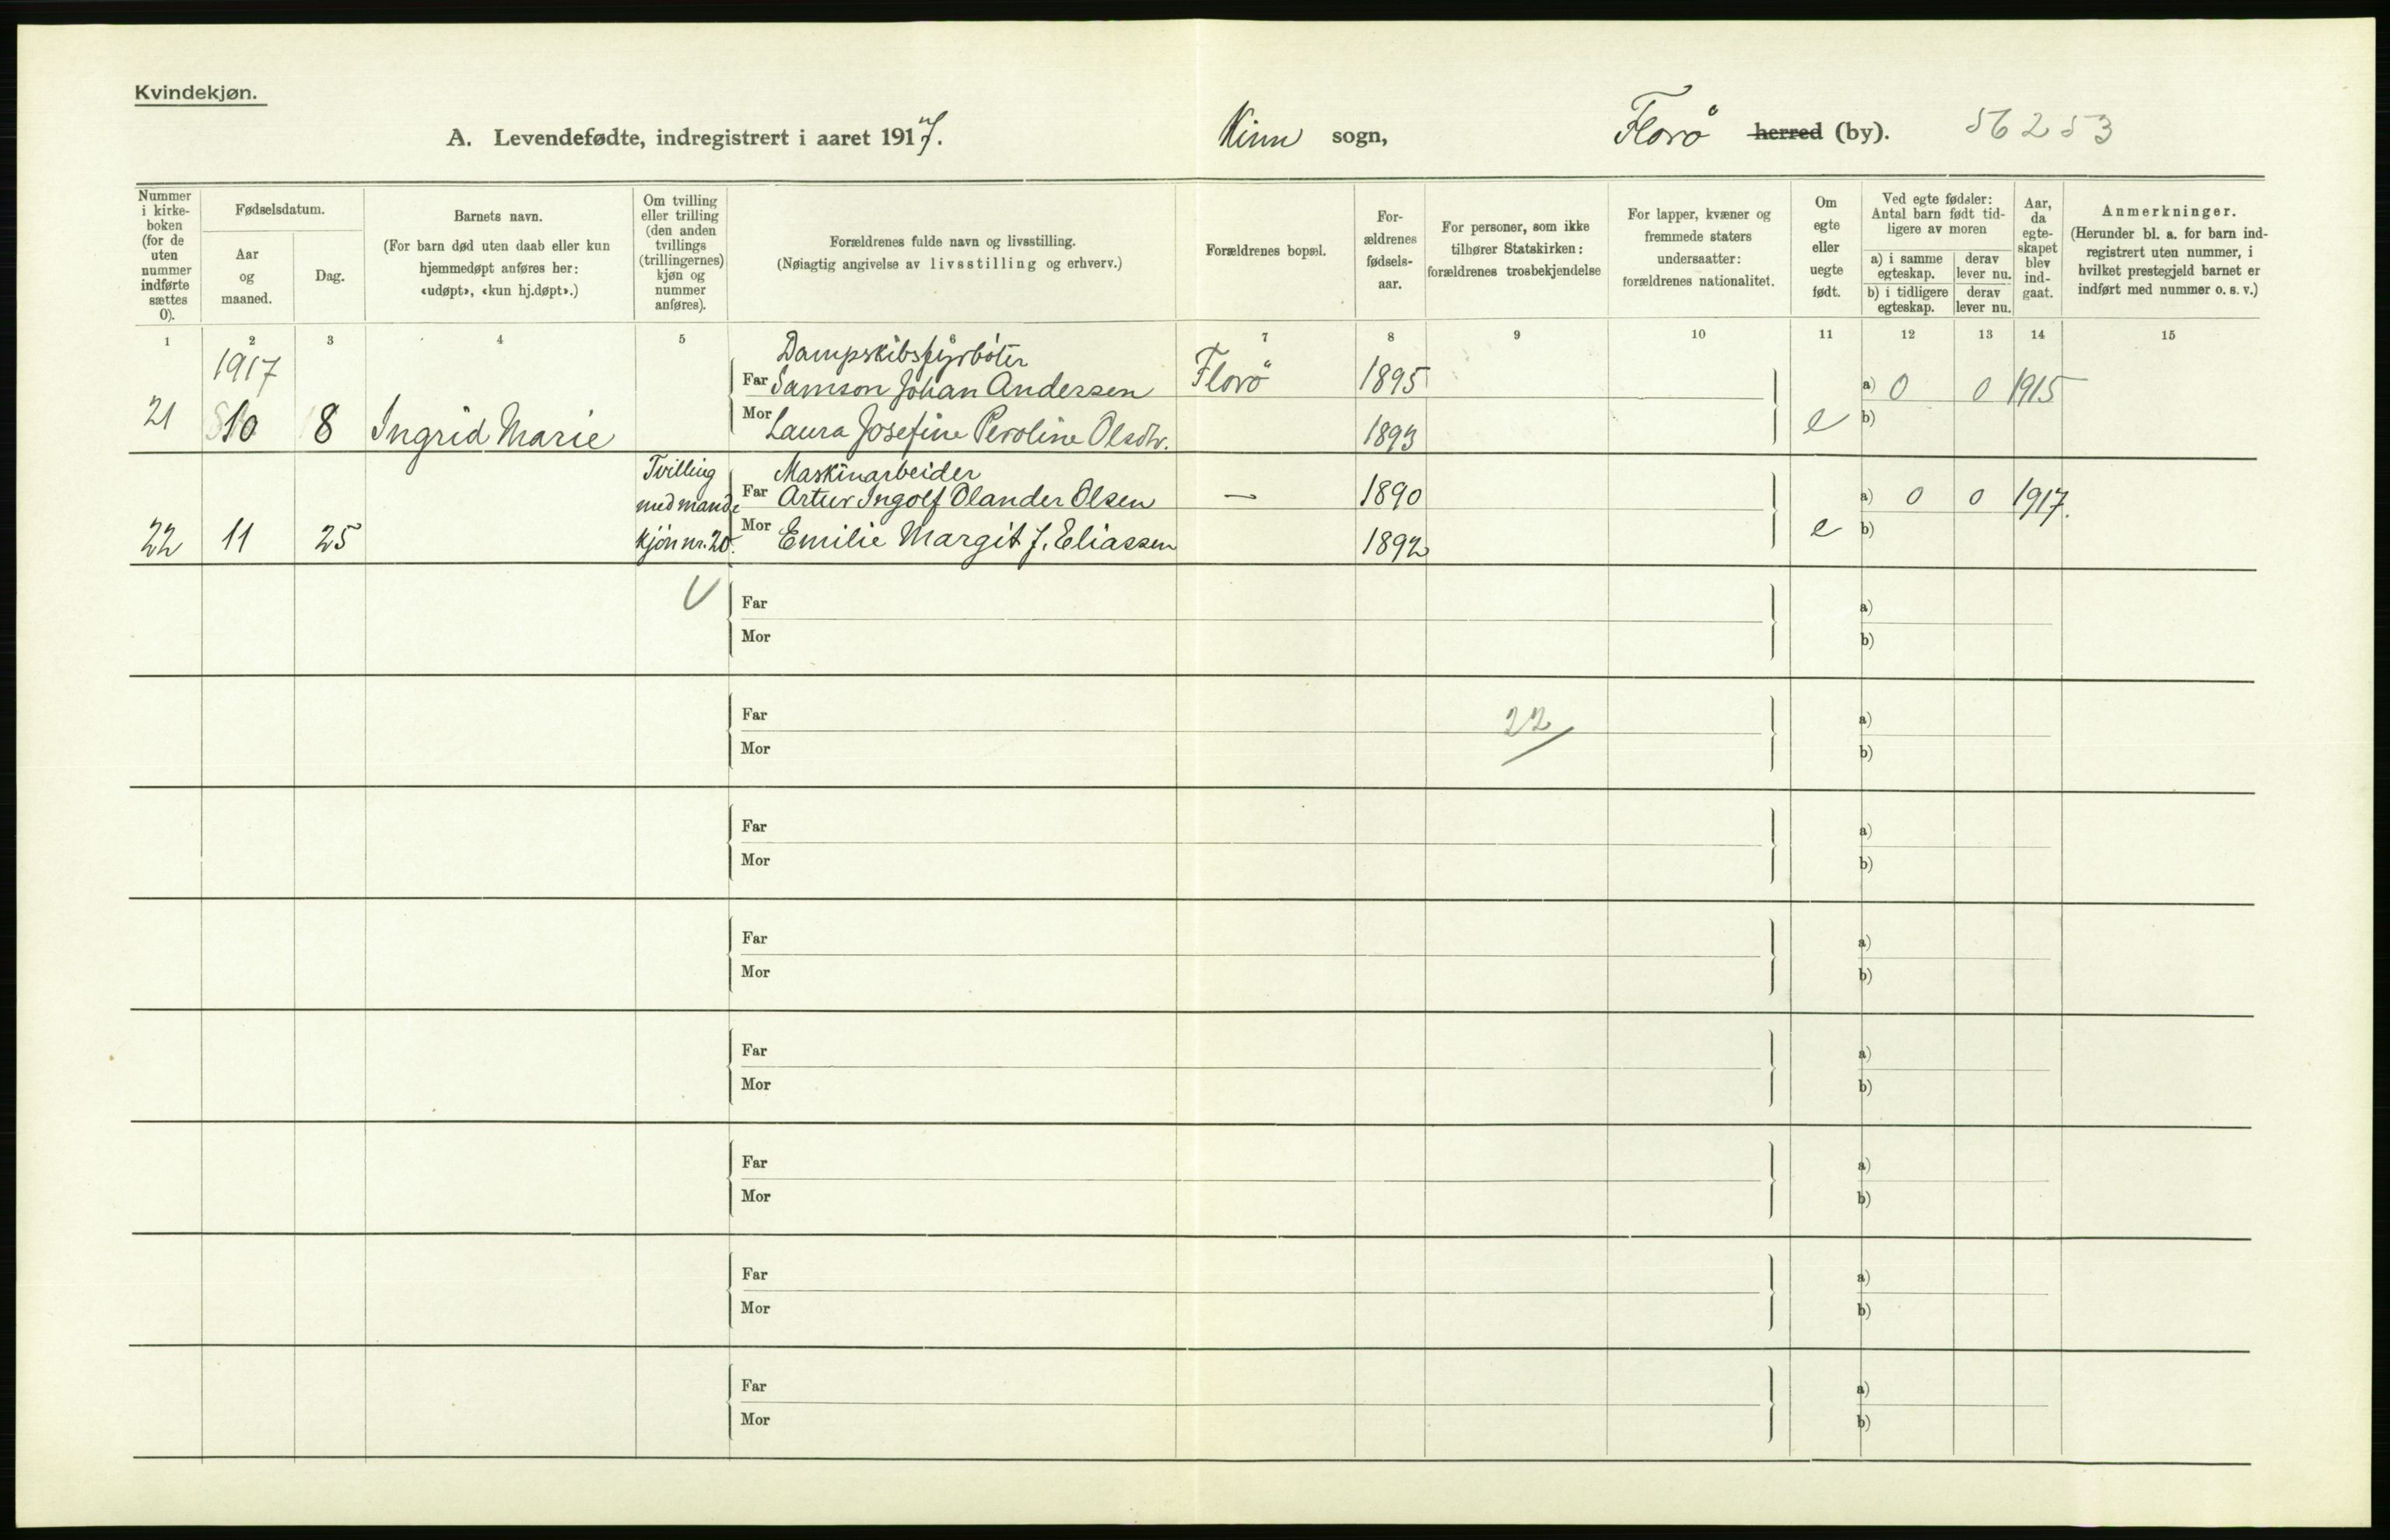 Kvindekjøn.
A. Levendefødte, indregistrert i aaret 1917. Kinn sogn, Florø herred (by). 56253
Nummer i kirke-boken (for de uten nummer indførte sættes 0).
Fødselsdatum.
Aar og maaned.
Dag.
Barnets navn.
(For barn død uten daab eller kun hjemmedøpt anføres her: «udøpt», «kun hj.døpt».)
Om tvilling eller trilling (den anden tvillings (trillingernes) kjøn og nummer anføres).
Forældrenes fulde navn og livsstilling.
(Nøiagtig angivelse av livsstilling og erhverv.)
Forældrenes bopæl.
For-ældrenes fødsels-aar.
For personer, som ikke tilhører Statskirken: forældrenes trosbekjendelse
For lapper, kvæner og fremmede staters undersaatter: forældrenes nationalitet.
Om egte eller uegte født.
Ved egte fødsler: Antal barn født tid-ligere av moren
a) i samme egteskap.
derav lever nu.
b) i tidligere egteskap.
derav lever nu.
Aar, da egte-skapet blev ind-gaat.
Anmerkninger.
(Herunder bl. a. for barn ind-registrert uten nummer, i hvilket prestegjeld barnet er indført med nummer o. s. v.)
1 2 3 4 5 6 7 8 9 10 11 12 13 14 15
1917 Dampskibsfyrbøter
Far Samson Johan Andersen Florø 1895 a) 0 0 1915
21 10 8 Ingrid Marie Mor Laura Josefine Peroline Olsdtr. 1893 e b)
Tvilling Maskinarbeider
med mand- Far Artur Ingolf Olander Olsen — 1890 a) 0 0 1917.
22 11 25 kjøn nr. 20. Mor Emilie Margit J. Eliassen 1892 e b)
Far a)
Mor b)
Far 22 a)
Mor b)
Far a)
Mor b)
Far a)
Mor b)
Far a)
Mor b)
Far a)
Mor b)
Far a)
Mor b)
Far a)
Mor b)